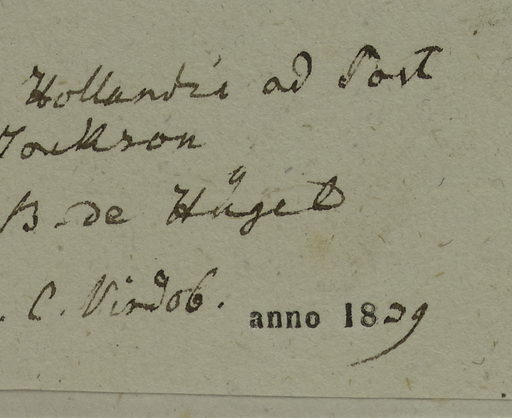 Hollandia ad Port
Jackson
B. de Hügel
. C. Vindob. anno 1839